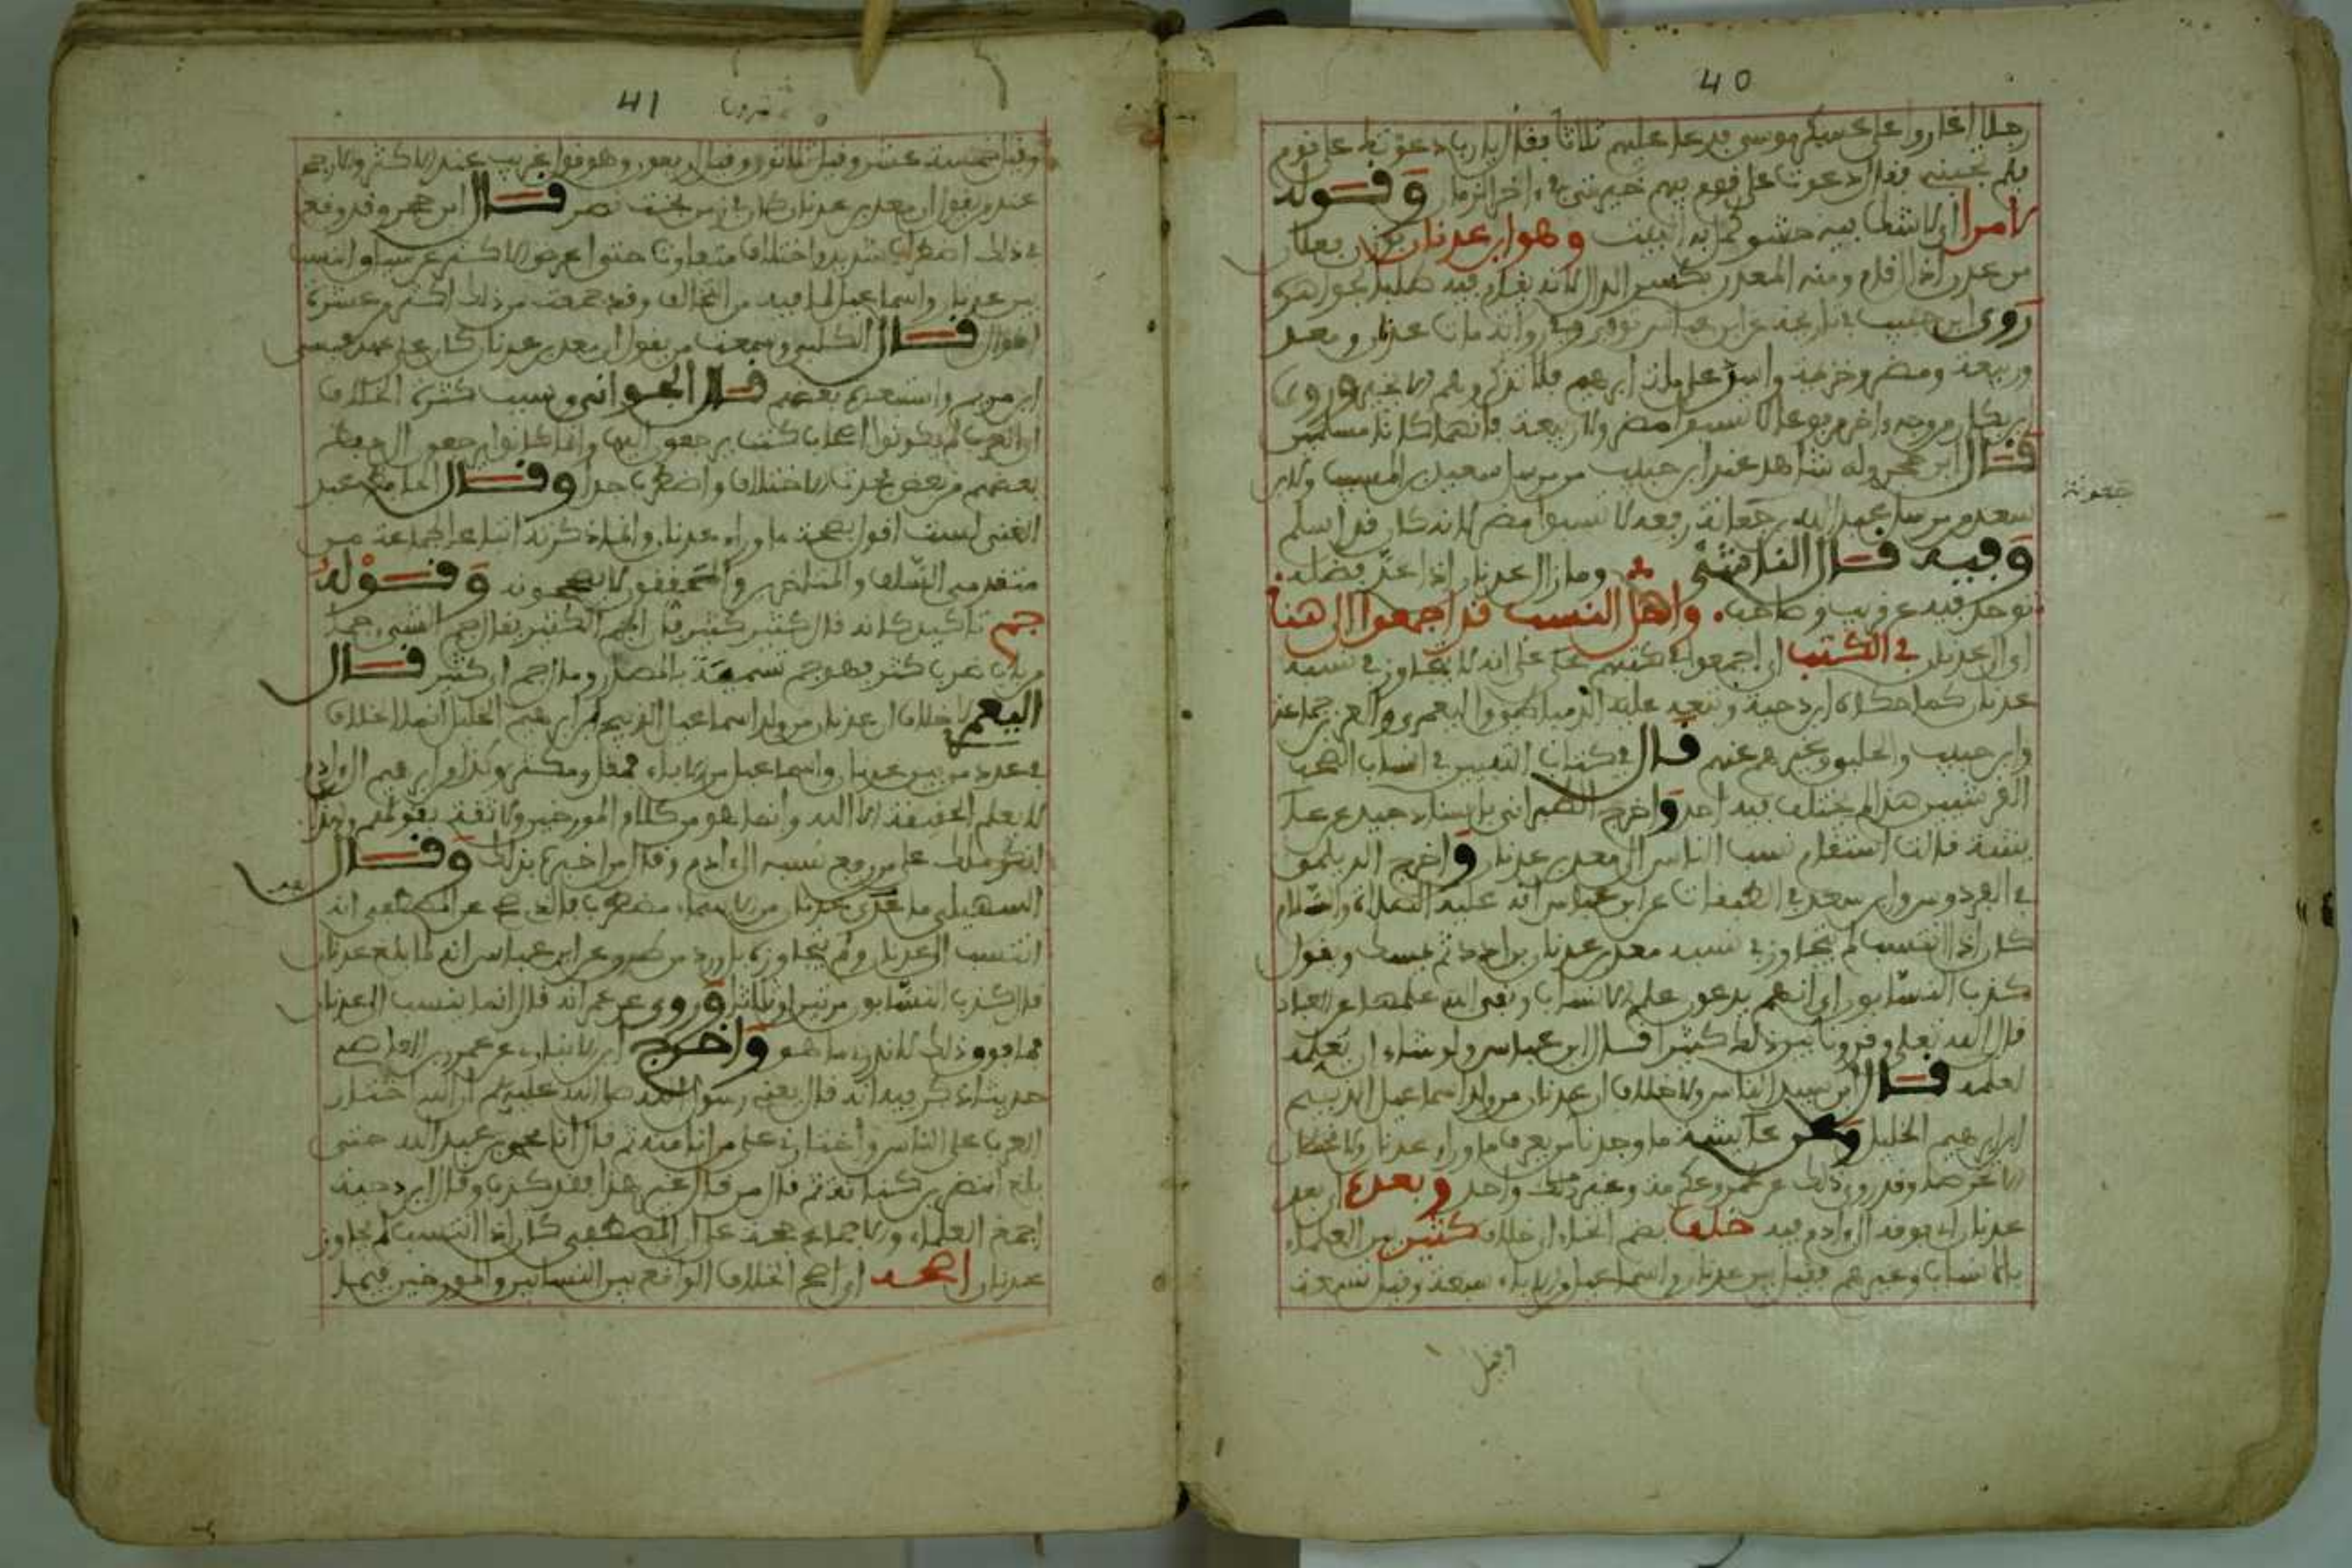 40
رجلا اغاروا على عسكر موسى فدعا عليهم ثلاثا فقال يا رب دعوتك على قوم
فلم تجبني فقال دعوت على قوم منهم خيرتي في اخر الزمان وقوله
لامرا اي لا شك فيه حشو كمل به البيت وهو ابن عدنان بوزن فعلان
من عدن اذا اقام ومنه المعدن بكسر الدال لانه يقام فيه لطلب جواهره
روى ابن حبيب في تاريخه عن ابن عباس قال مات عدنان ومعد
وربيعة ومضر وخزيمة واسد على ملة ابرهيم فلا تذكروهم الا بخير وروى
الزبير بن بكار من وجه اخر مرفوعا لا تسبوا مضر ولا ربيعة فانهما كانا مسلمين
قال ابن حجر وله شاهد عند ابن حبيب من مرسل سعيد بن المسيب ولابن
سعد من مرسل عبد الله بن خالد رفعه لا تسبوا مضر لانه كان قد اسلم
وفيه قال الناشئي وما زال عدنان اذا عد فضله
توحد فيه عن قريب وصاحب واهل النسب قد اجمعوا الى هنا
اي الى عدنان في الكتب اي اجمعوا في كتبهم على انه لا يتجاوز في نسبه
عدنان كما حكاه ابن دحية وتبعه عليه الدمياطي واليعمري والعز بن جماعة
وابن حبيب والحلبي وغيرهم عنهم قال في كتاب التبيين في انساب
القرشيين هذا لم يختلف فيه احد واخرج الطبراني باسناد جيد عن عا
يشة قالت استقام نسب الناس الى معد بن عدنان واخرج الديلمي
في الفردوس وابن سعد في الطبقات عن ابن عباس انه عليه الصلاة والسلام
كان اذا انتسب لم يجاوز في نسبه معد بن عدنان بن ادد ثم يمسك ويقول
كذب النسابون اي انهم يدعون علم الانساب ونفى الله علمها عن العباد
قال الله تعلى وقرونا بين ذلك كثيرا قال ابن عباس ولو شاء ان يعلمه
لعلمه قال ابن سيد الناس ولا خلاف ان عدنان من ولد اسماعيل الذبيح
ابن ابرهيم الخليل وعن عائشة ما وجدنا من يعرف ما وراء عدنان ولا قحطان
الا تخرصا وقد روي ذلك عن عمر وعكرمة وغير واحد وبعده اي بعد
عدنان اي فوقه الى ادم فيه خلف بضم الخاء اي خلاف كثير من العلماء
بالانساب وغيرهم فقيل بين عدنان واسماعيل من الاباء سبعة وقيل تسعة
وقيل
41
وقيل خمسة عشر وقيل ثلاثون وقيل اربعون وهو قول غريب عند الاكثر والارجح
عند من يقول ان معد بن عدنان كان في زمن بخت نصر قال ابن حجر وقد وقع
في ذلك اضطراب شديد واختلاف متفاوت حتى اعرض الاكثر عن سياق النسب
بين عدنان واسماعيل لما فيه من التخالف وقد جمعت من ذلك اكثر من عشرة
اقوال قال الكلبي وسمعت من يقول ان معد بن عدنان كان على عهد عيسى
ابن مريم واستبعده بعضهم قال الجواني وسبب كثرة الخلاف
ان العرب لم يكونوا اصحاب كتب يرجعون اليها وانما كانوا يرجعون الى حفظ
بعضهم من بعض فحدث الاختلاف واضطرب جدا وقال الحافظ عبد
الغني لست اقول بصحة ما وراء عدنان وانما ذكرته اتباعا لجماعة من
متقدمي السلف والمتاخرين والمحققون لا يصححونه وقوله
جم تاكيد كانه قال كثير كثير فان الجم الكثير يقال جم الشيء جما
من باب ضرب كثر فهو جم تسمية بالمصدر ومال جم اي كثير قال
اليعمري لا خلاف ان عدنان من ولد اسماعيل الذبيح بن ابرهيم الخليل انما الخلاف
في عدد من بين عدنان واسماعيل من الاباء فمقل ومكثر وكذا من ابرهيم الى ادم
لا يعلم الحقيقة الا الله وانما هو من كلام المورخين ولا ثقة بقولهم ولهذا
انكر مالك على من رفع نسبه الى ادم وقال من اخبره بذلك وقال
السهيلي ما بعد عدنان من الاسماء مضطرب فالذي صح عن المصطفى انه
انتسب الى عدنان ولم يتجاوزه بل ورد من طريق عن ابن عباس انه لما بلغ عدنان
قال كذب النسابون مرتين او ثلاثا وروي عن عمر انه قال انما ننتسب الى عدنان
فما فوق ذلك لا ندري ما هو واخرج ابن الانباري عن عمرو بن العاصي
حديثا ذكر فيه انه قال يعني رسول الله صلى الله عليه وسلم ان الله اختار
العرب على الناس واختارني على من انا منه ثم قال انا محمد بن عبد الله حتى
بلغ النضر بن كنانة ثم قال من قال غير هذا فقد كذب وقال ابن دحية
اجمع العلماء والاجماع حجة على ان المصطفى كان اذا انتسب لم يجاوز
عدنان اصحه اي اصح الخلاف الواقع بين النسابين والمورخين فيما